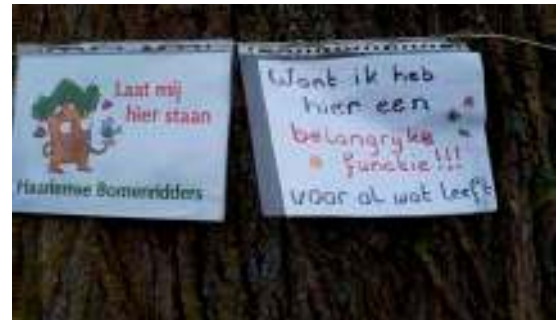 Laat mij
hier staan
Haarlemse Bomenridders
Want ik heb
hier een
belangryke
functie!!!
voor al wat leeft